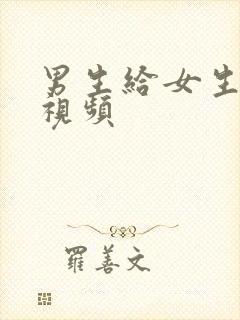 男生給女生
視頻
羅善文